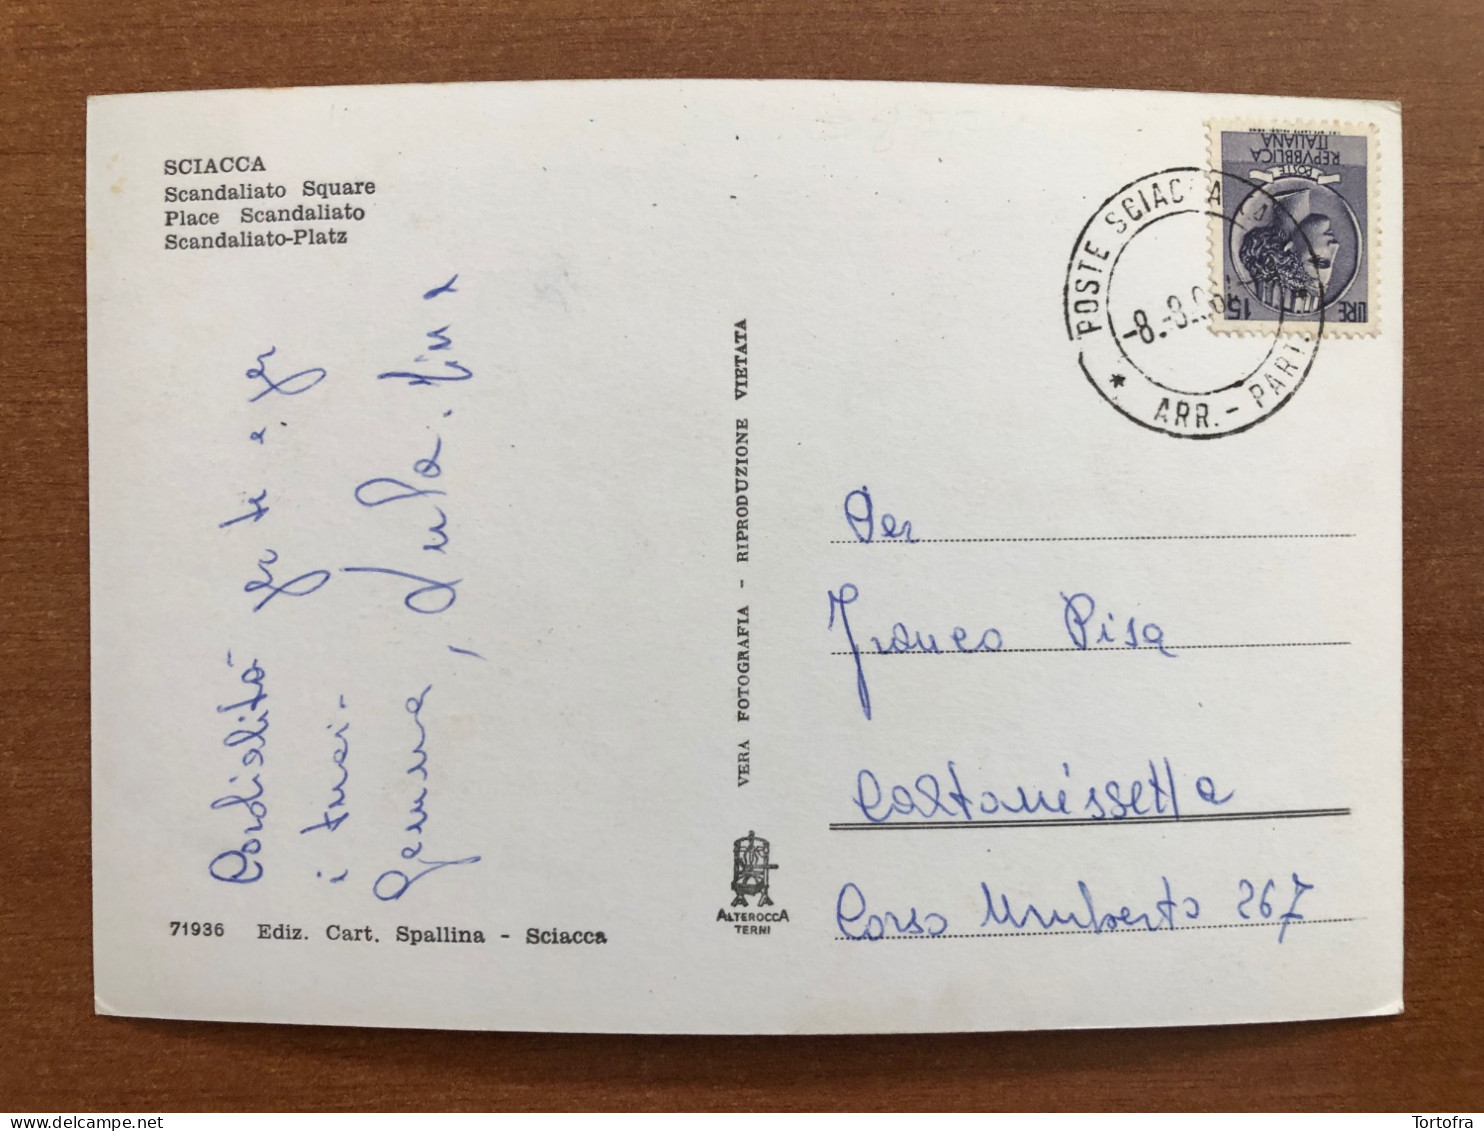 SCIACCA
Scandaliato Square
Place Scandaliato
Scandaliato-Platz
Cordialità per te e per
i tuoi -
Gemma,
71936 Ediz. Cart. Spallina - Sciacca
VERA FOTOGRAFIA - RIPRODUZIONE VIETATA
ALTEROCCA
TERNI
POSTE ITALIANE
REPVBBLICA
ITALIANA
LIRE 15
POSTE SCIACCA
-8.-8.
* ARR.- PART.
Per
Franco Pisa
Caltanissetta
Corso Umberto 267
Tortofra